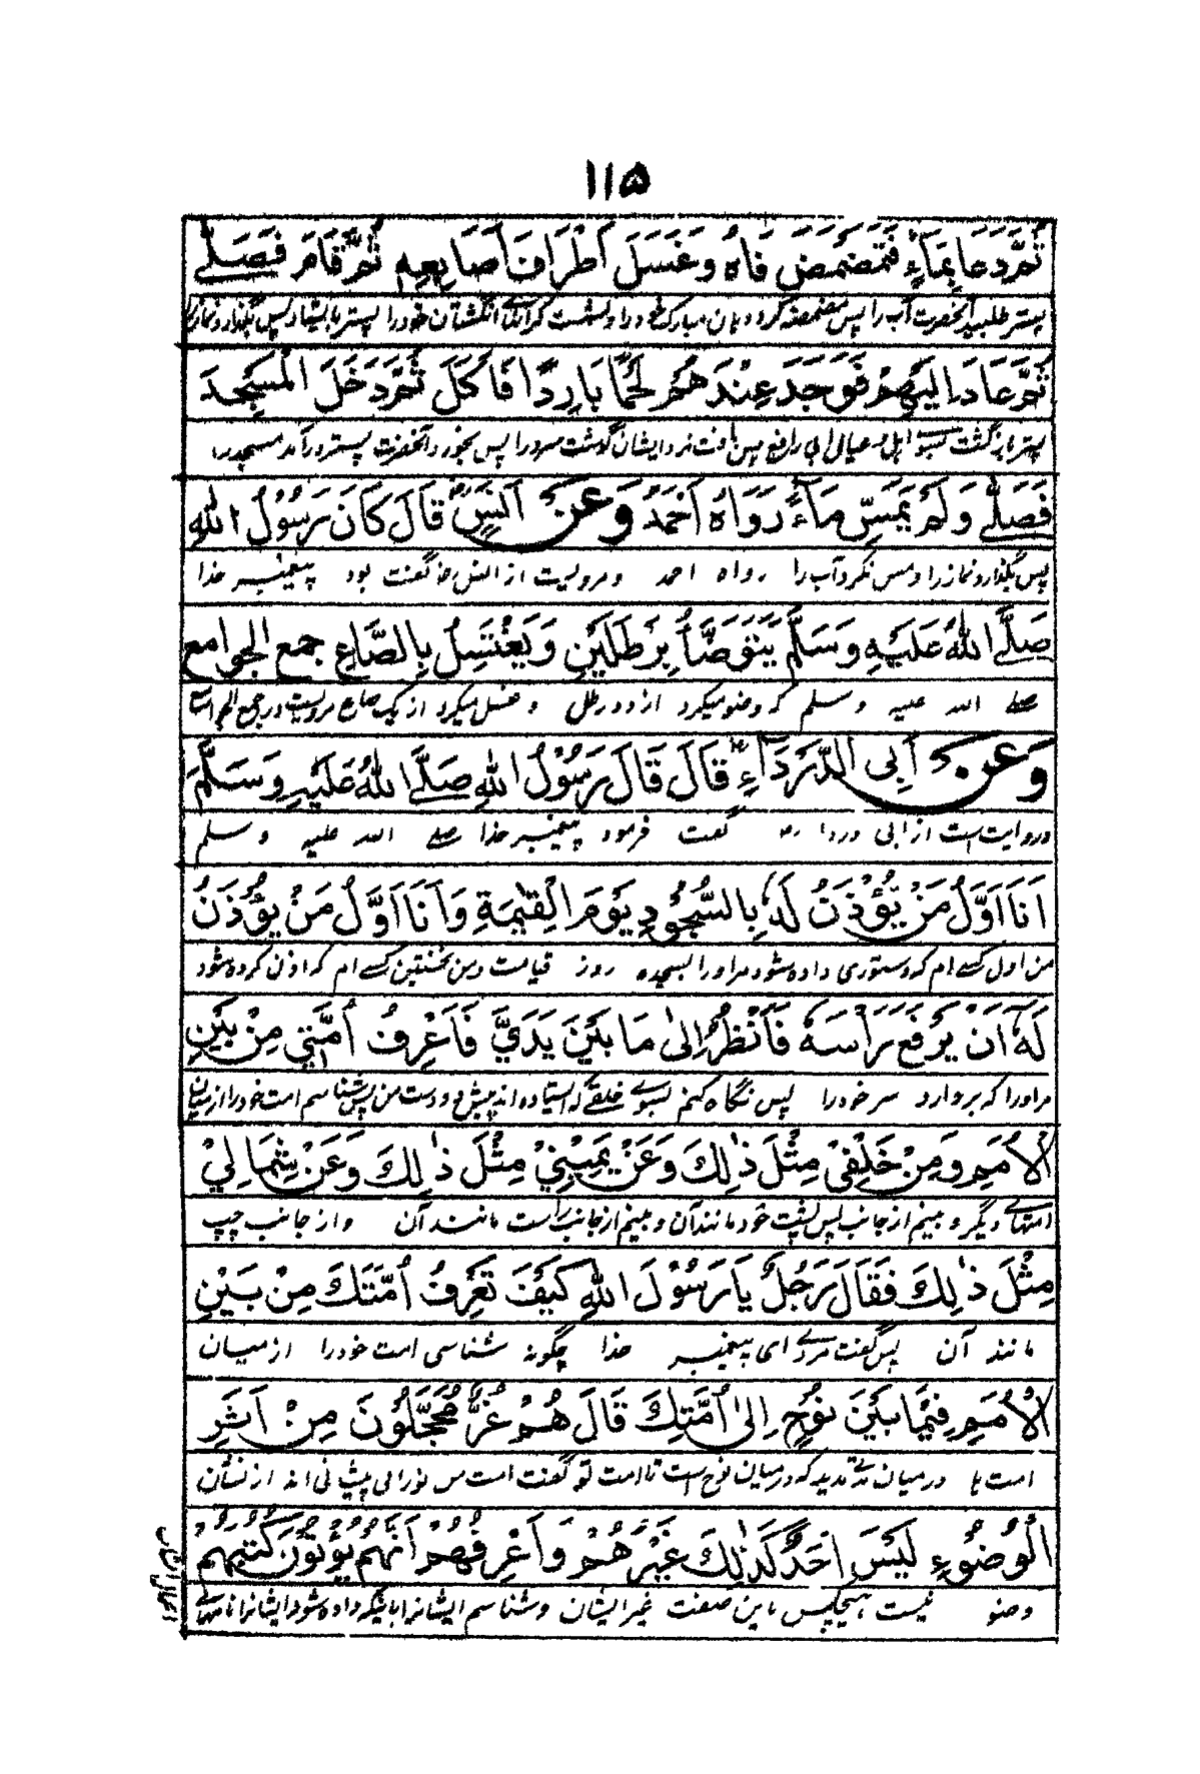 ۱۱۵
ثُمَّ دَعَا بِمَاءٍ فَتَمَضْمَضَ فَاهُ وَغَسَلَ اَطْرَافَ اَصَابِعِهٖ ثُمَّ قَامَ فَصَلّٰے
پستر طلبید آنحضرت آب را پس مضمضه کرد دهان مبارک خود را و بشست انگشتان خود را پستر
ثُمَّ عَادَ اِلَيْهِمْ فَوَجَدَ عِنْدَهُمْ لَحْمًا بَارِدًا فَاَكَلَ ثُمَّ دَخَلَ الْمَسْجِدَ
پستر باز گشت بسوے اهل و عیال ابی رافع پس یافت نزد ایشان گوشت سرد را پس بخورد آنحضرت پستر در آمد مسجد را
فَصَلّٰے وَلَمْ يَمَسَّ مَآءً رَوَاهُ اَحْمَدُ وَعَنْ اَنَسٍ قَالَ كَانَ رَسُوْلُ اللهِ
پس بگذارد نماز را و مس نکرد آب را رواه احمد و مرویست از انس رض گفت بود پیغمبر خدا
صَلَّے اللهُ عَلَيْهِ وَسَلَّمَ يَتَوَضَّأُ بِرَطَلَيْنِ وَيَغْتَسِلُ بِالصَّاعِ جمع الجوامع
صلے الله علیه وسلم که وضو میکرد از دو رطل و غسل میکرد از یک صاع مرویست در جمع الجوامع
وَعَنْ اَبِى الدَّرْدَآءِ قَالَ قَالَ رَسُوْلُ اللهِ صَلَّے اللهُ عَلَيْهِ وَسَلَّمَ
و روایت است از ابی دردا رض گفت فرمود پیغمبر خدا صلے الله علیه وسلم
اَنَا اَوَّلُ مَنْ يُّؤْذَنُ لَهٗ بِالسُّجُوْدِ يَوْمَ الْقِيٰمَةِ وَاَنَا اَوَّلُ مَنْ يُؤْذَنُ
من اول کسے ام که دستوری داده شود مر او را بسجده روز قیامت و من نخستین کسے ام که اذن کرده شود
لَهٗ اَنْ يَرْفَعَ رَاْسَهٗ فَاَنْظُرُ اِلٰى مَا بَيْنَ يَدَيَّ فَاَعْرِفُ اُمَّتِي مِنْ بَيْنِ
مر او را که بردارد سر خود را پس نگاه کنم بسوے خلقے که استاده اند پیش دو دست من پس شناسم امت خود را از میان
الْاُمَمِ وَمِنْ خَلْفِىْ مِثْلَ ذٰلِكَ وَعَنْ يَمِيْنِيْ مِثْلَ ذٰلِكَ وَعَنْ شِمَالِيْ
امتهاے دیگر و بینم از جانب پس پشت خود مانند آن و بینم از جانب راست مانند آن و از جانب چپ
مِثْلَ ذٰلِكَ فَقَالَ رَجُلٌ يَا رَسُوْلَ اللهِ كَيْفَ تَعْرِفُ اُمَّتَكَ مِنْ بَيْنِ
مانند آن پس گفت مردے ای پیغمبر خدا چگونه شناسی امت خود را از میان
الْاُمَمِ فِيْمَا بَيْنَ نُوْحٍ اِلٰى اُمَّتِكَ قَالَ هُمْ غُرٌّ مُّحَجَّلُوْنَ مِنْ اَثَرِ
امت ها در میان مدتے مدید که در میان نوح است تا امت تو گفت امت من نورانی پیشانی اند از نشان
الْوُضُوْءِ لَيْسَ اَحَدٌ كَذٰلِكَ غَيْرَهُمْ وَاَعْرِفُهُمْ اَنَّهُمْ يُؤْتَوْنَ كُتُبَهُمْ
وضو نیست هیچکس باین صفت غیر ایشان و شناسم ایشانرا باینکه داده شود ایشانرا نامهاے